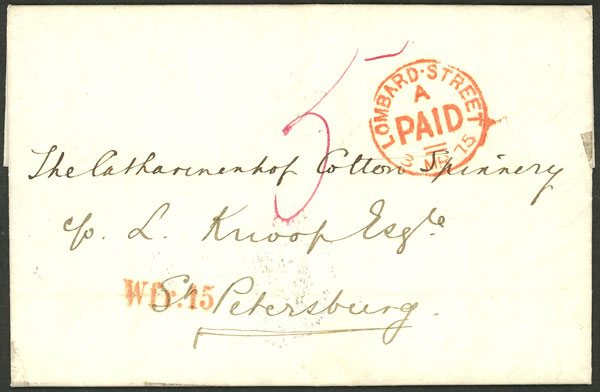 5
LOMBARD·STREET
A
PAID
MR 75
The Catharinenhof Cotton Spinnery
c/o. L. Knoop Esqre
Wfr. 15
St Petersburg.